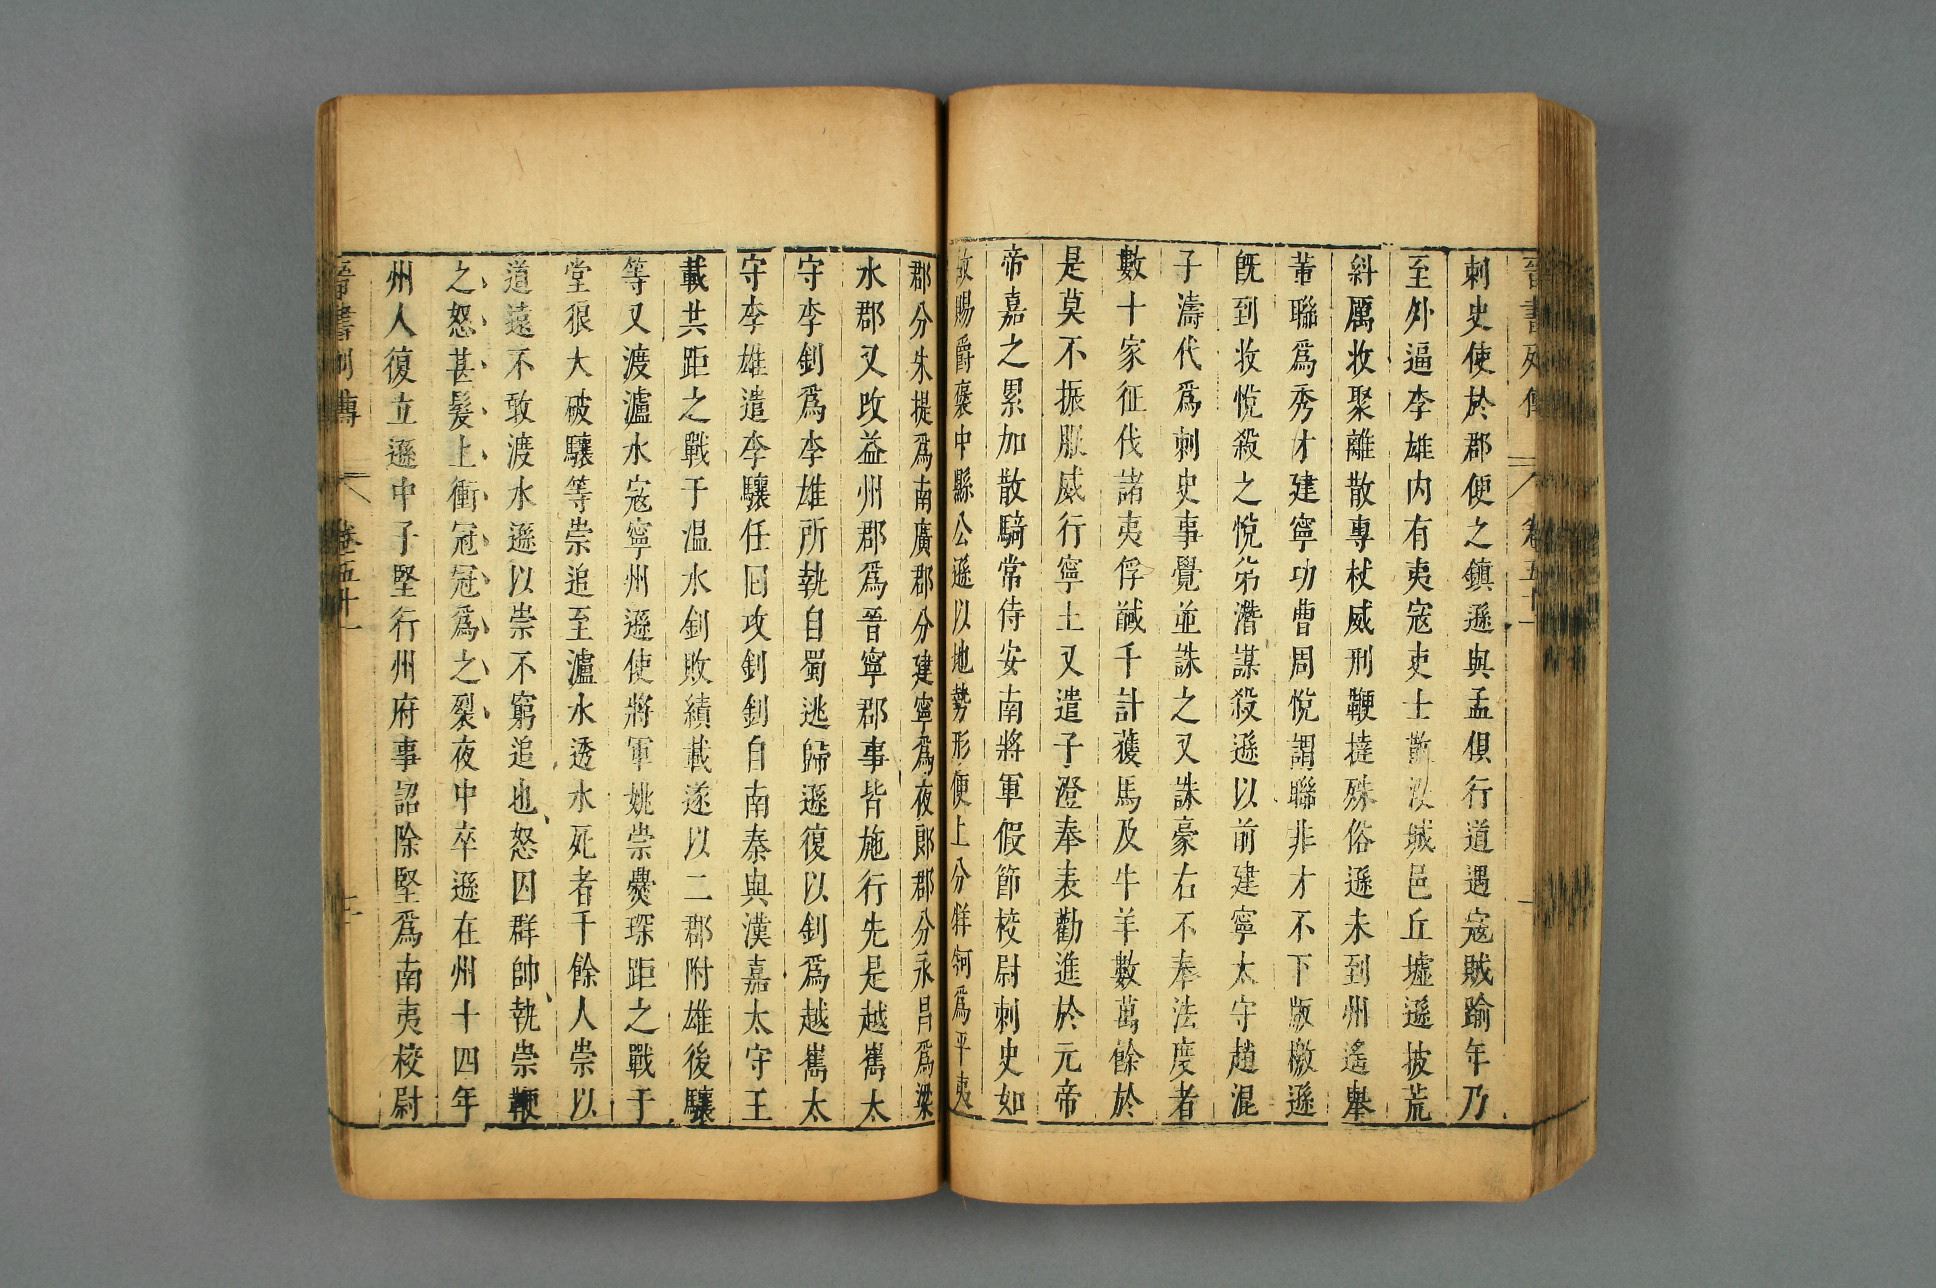 晉書列傳 卷五十一
刺史使於郡便之鎮遜與孟俱行道遇寇賊踰年乃
至外逼李雄內有夷寇吏士散沒城邑丘墟遜披荒
糾厲收聚離散專杖威刑鞭撻殊俗遜未到州遙舉
董聯爲秀才建寧功曹周悅謂聯非才不下版檄遜
旣到收悅殺之悅弟潛謀殺遜以前建寧太守趙混
子濤代爲刺史事覺並誅之又誅豪右不奉法度者
數十家征伐諸夷俘馘千計獲馬及牛羊數萬餘於
是莫不振服威行寧土又遣子澄奉表勸進於元帝
帝嘉之累加散騎常侍安南將軍假節校尉刺史如
故賜爵褒中縣公遜以地勢形便上分牂牁爲平夷
郡分朱提爲南廣郡分建寧爲夜郎郡分永昌爲梁
水郡又改益州郡爲晉寧郡事皆施行先是越巂太
守李釗爲李雄所執自蜀逃歸遜復以釗爲越巂太
守李雄遣李驤任回攻釗釗自南秦與漢嘉太守王
載共距之戰于溫水釗敗績載遂以二郡附雄後驤
等又渡瀘水寇寧州遜使將軍姚崇爨琛距之戰于
堂狼大破驤等崇追至瀘水透水死者千餘人崇以
道遠不敢渡水遜以崇不窮追也怒囚群帥執崇鞭
之怒甚髮上衝冠冠爲之裂夜中卒遜在州十四年
州人復立遜中子堅行州府事詔除堅爲南夷校尉
晉書列傳 卷五十一